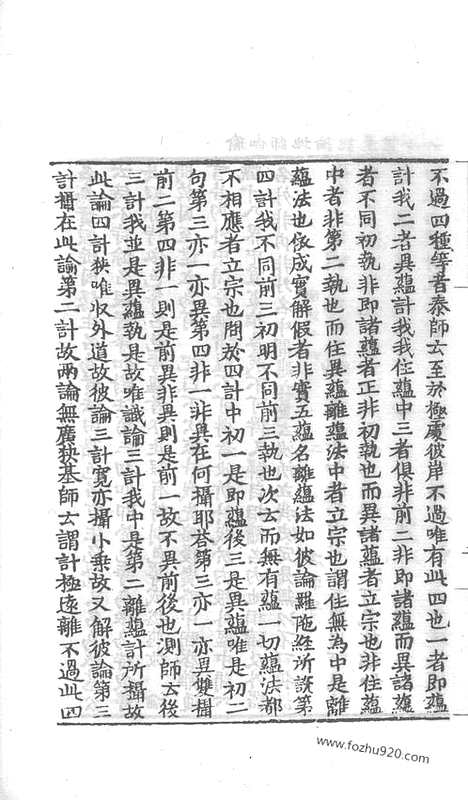 不過四種等昔泰師云至於極處彼岸不過唯有此四也一者即蘊
計我二者異蘊計我我住蘊中三者俱非前二非即諸蘊而異諸蘊
者不同初執非即諸蘊者正非初執也而異諸蘊者立宗也非住蘊
中者非第二執也而住異蘊離蘊法中者立宗也謂住無為中是離
蘊法也依成實解假者非實五蘊名離蘊法如彼論羅陁經所說第
四計我不同前三初明不同前三執也次云而無有蘊一切蘊法都
不相應者立宗也問於四計中初一是即蘊後三是異蘊唯是初二
句第三亦一亦異第四非一非異在何攝耶荅第三亦一亦異雙攝
前二第四非一則是前異非異則是前一故不異前後也測師云後
三計我並是異蘊執是故唯識論三計我中是第二離蘊計所攝故
此論四計狹唯収外道故彼論三計寬亦攝小乗故又解彼論第三
計攝在此論第二計故兩論無廣狹基師云謂計極遠離不過此四
www.fozhu920.com